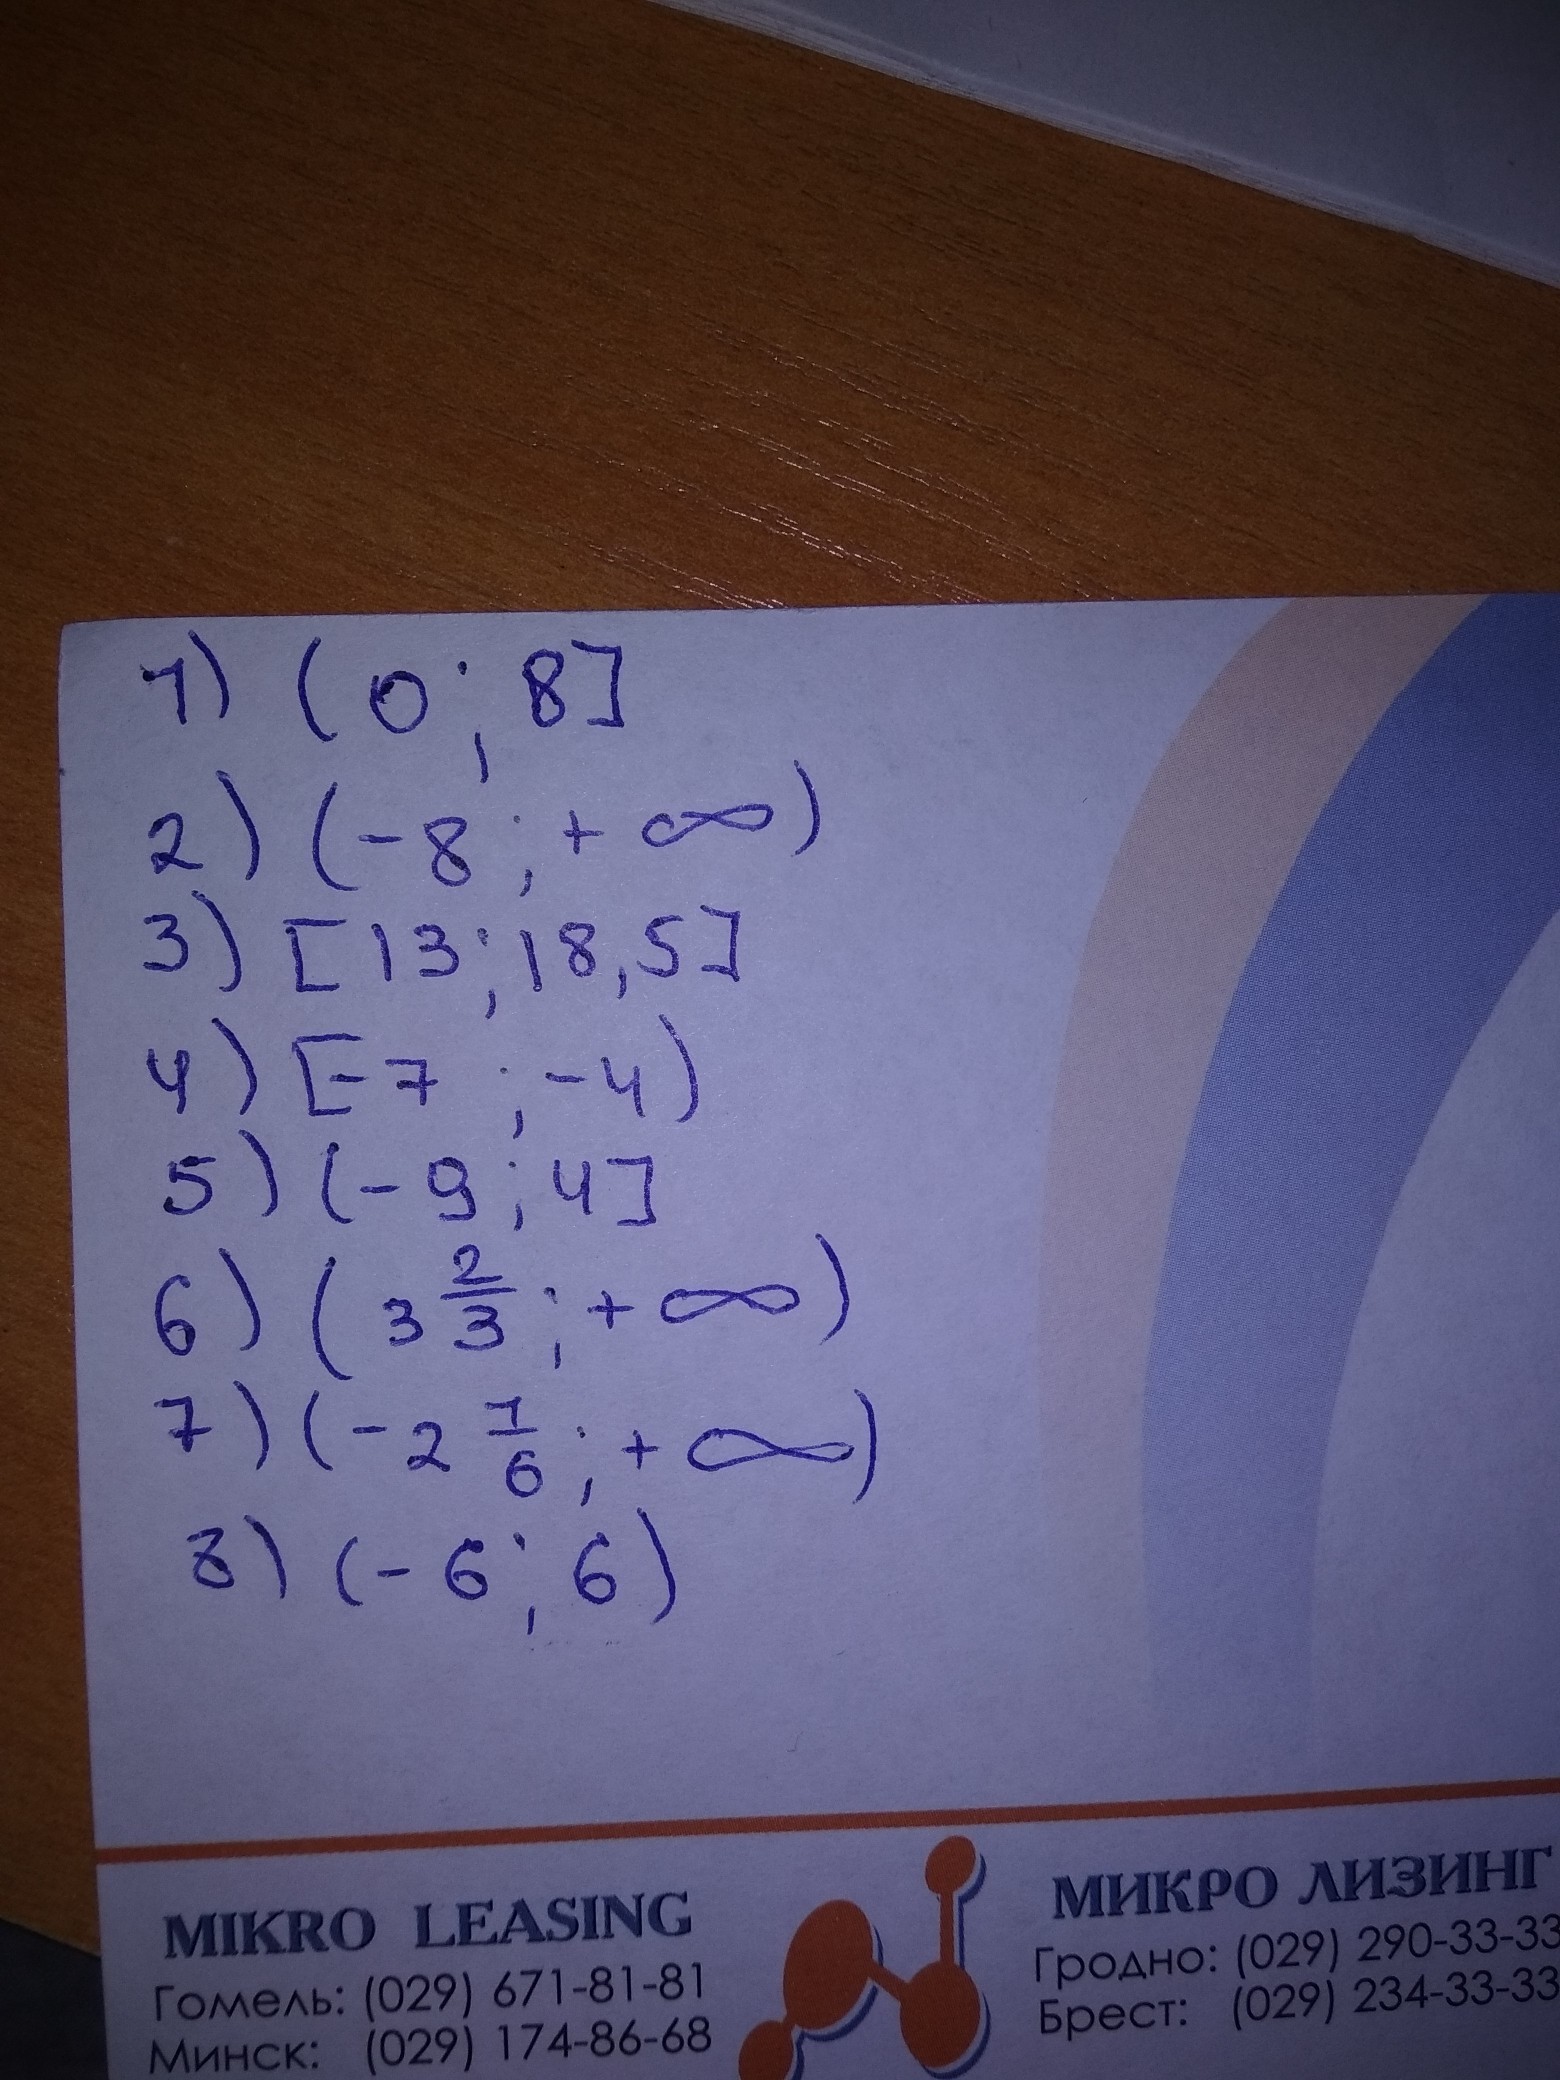 1) (0; 8]
2) (-8; +∞)
3) [13; 18,5]
4) [-7; -4)
5) (-9; 4]
6) (3 2/3; +∞)
7) (-2 1/6; +∞)
8) (-6; 6)
MIKRO LEASING
Гомель: (029) 671-81-81
Минск: (029) 174-86-68
МИКРО ЛИЗИНГ
Гродно: (029) 290-33-33
Брест: (029) 234-33-33